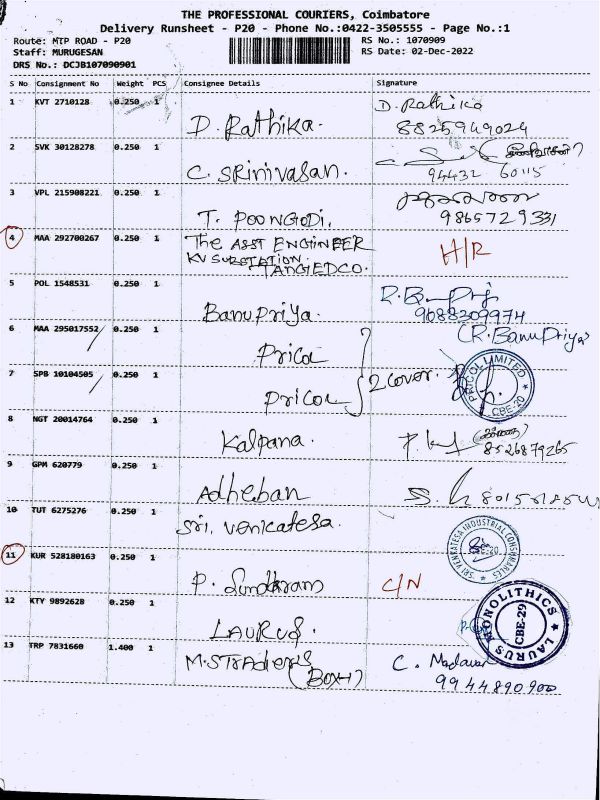 THE PROFESSIONAL COURIERS, Coimbatore
Delivery Runsheet - P20 - Phone No.:0422-3505555 - Page No.:1
Route: MTP ROAD - P20
RS No.: 1070909
Staff: MURUGESAN
RS Date: 02-Dec-2022
DRS No.: DCJB107090901
S No Consignment No Weight PCS Consignee Details Signature
1 KVT 2710128 0.250 1 D. Rathika. D. Rathika
8825949024
2 SVK 30128278 0.250 1 C. SRinivasan.
94432 60115
3 VPL 215908221 0.250 1 T. POONGODI.
9865729331
4 MAA 292700267 0.250 1 The ASST ENGINEER H/R
KV SUBSTATION.
TANGEDCO.
5 POL 1548531 0.250 1 BanuPriya. R.
9688209974
(R.BanuPriya)
6 MAA 295017552 0.250 1 Pricol
7 SPB 10104505 0.250 1 Pricol 2 cover.
PRICOL LIMITED
CBE-20
8 NGT 20014764 0.250 1 Kalpana.
8526879265
9 GPM 620779 0.250 1 Adheban
10 TUT 6275276 0.250 1 Sri. Venkatesa.
SRI VENKATESA INDUSTRIAL
CBE-20
11 KUR 528180163 0.250 1 P. Sundaram C/N
12 KTY 9892628 0.250 1 LAURUS.
LAURUS MONOLITHICS
CBE-29
13 TRP 7831660 1.400 1 M.S Traders C.
(Box-1) 9944890900